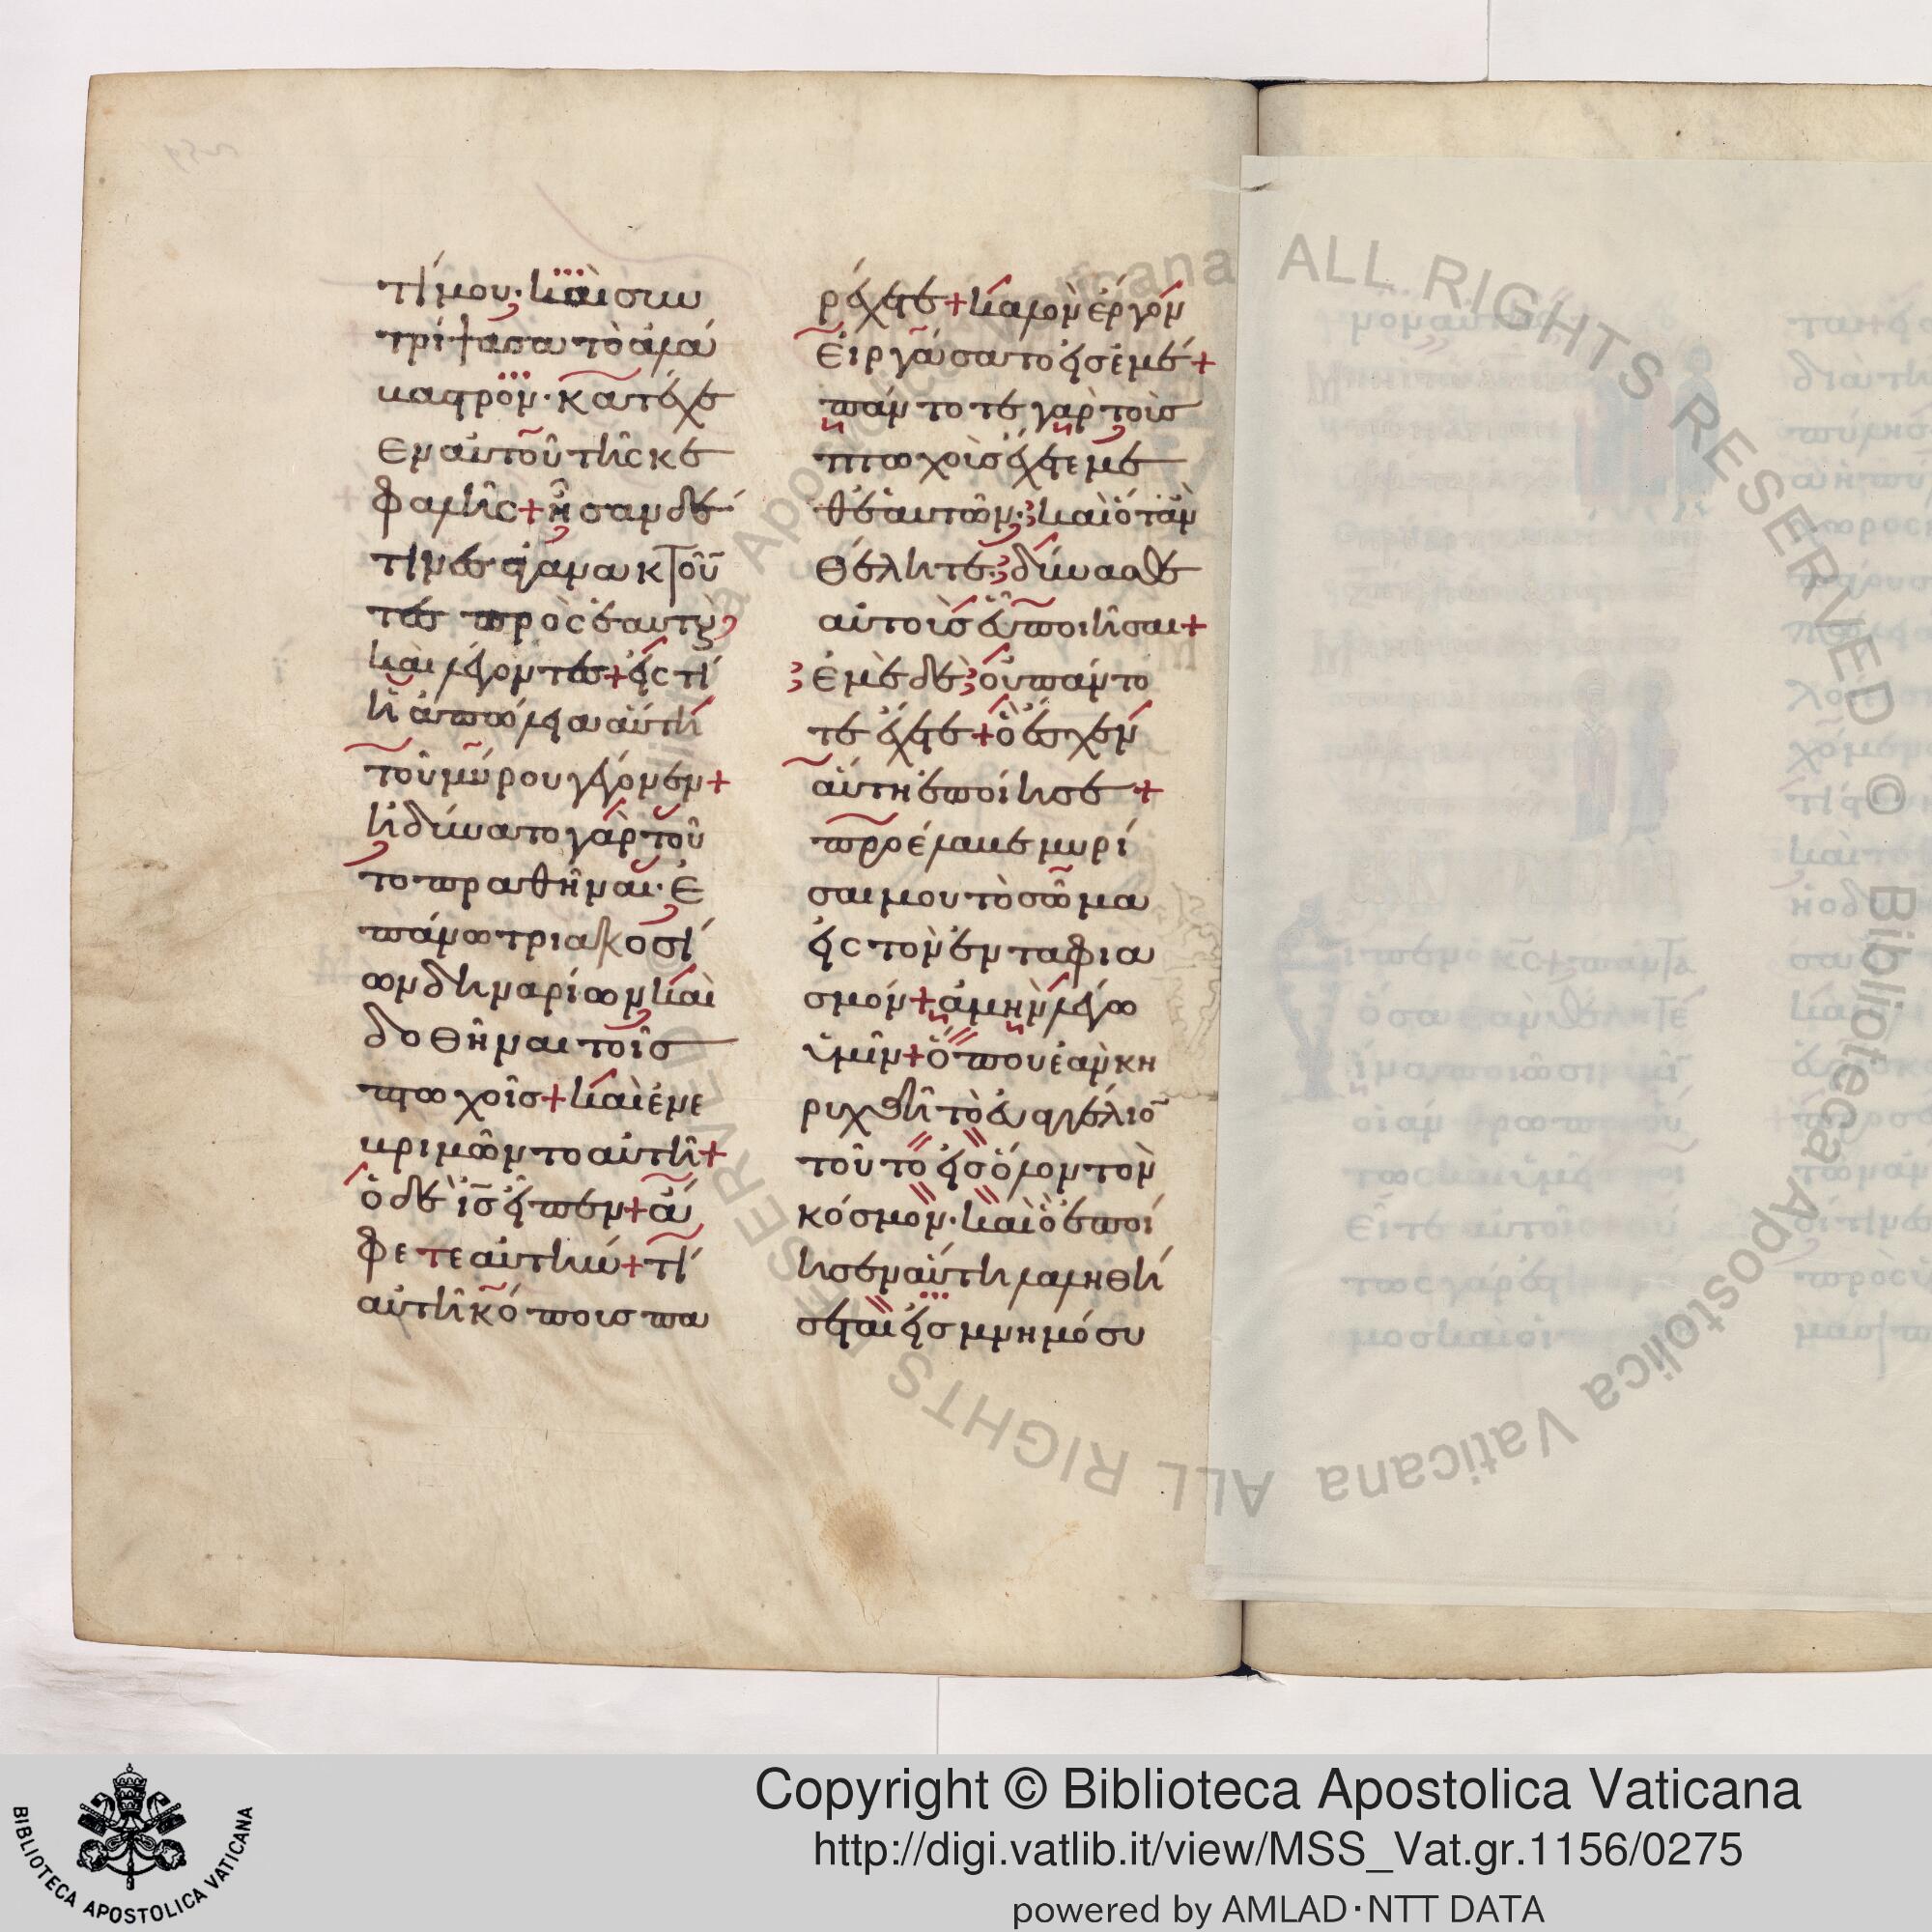 τίμου· καὶ συν
τρίψασα τὸ ἀλά
βαστρον· κατέχε
εν αὐτοῦ τῆς κε
φαλῆς+ ἦσαν δέ
τινες ἀγανακτοῦν
τες πρὸς ἑαυτοὺς
καὶ λέγοντες+ εἰς τί
ἡ ἀπώλεια αὕτη
τοῦ μύρου γέγονεν+
ἠδύνατο γὰρ τοῦ
το πραθῆναι· ἐ
πάνω τριακοσί
ων δηναρίων καὶ
δοθῆναι τοῖς
πτωχοῖς+ καὶ ἐνε
βριμῶντο αὐτῆ+
ὁ δὲ ις εἶπεν+ ἄ
φετε αὐτήν+ τί
αὐτῆ κόπους πα
ρέχετε+ καλὸν ἔργον
εἰργάσατο εἰς ἐμέ+
πάντοτε γὰρ τοὺς
πτωχοὺς ἔχετε με
θ' ἑαυτῶν· καὶ ὅταν
θέλητε· δύνασθε
αὐτοὺς εὖ ποιῆσαι+
ἐμὲ δὲ οὐ πάντο
τε ἔχετε+ ὃ ἔσχεν
αὕτη ἐποίησε+
προέλαβε μυρί
σαι μου τὸ σῶμα
εἰς τὸν ἐνταφια
σμόν+ ἀμὴν λέγω
ὑμῖν+ ὅπου ἐὰν κη
ρυχθῆ τὸ εὐαγγέλιον
τοῦτο εἰς ὅλον τὸν
κόσμον· καὶ ὃ ἐποί
ησεν αὕτη λαληθή
σεται εἰς μνημόσυ
ALL RIGHTS RESERVED © Biblioteca Apostolica Vaticana
BIBLIOTECA APOSTOLICA VATICANA
Copyright © Biblioteca Apostolica Vaticana
http://digi.vatlib.it/view/MSS_Vat.gr.1156/0275
powered by AMLAD·NTT DATA